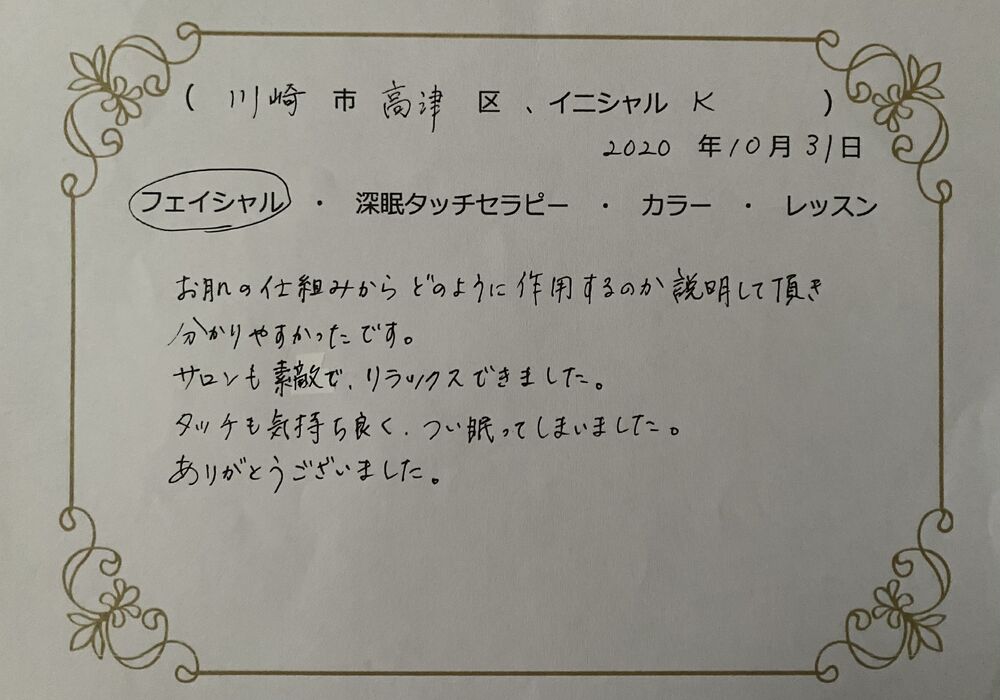 ( 川崎 市 高津 区 、イニシャル K )
2020 年 10 月 31 日
フェイシャル ・ 深眠タッチセラピー ・ カラー ・ レッスン
お肌の仕組みからどのように作用するのか説明して頂き
分かりやすかったです。
サロンも素敵で、リラックスできました。
タッチも気持ち良く、つい眠ってしまいました。
ありがとうございました。